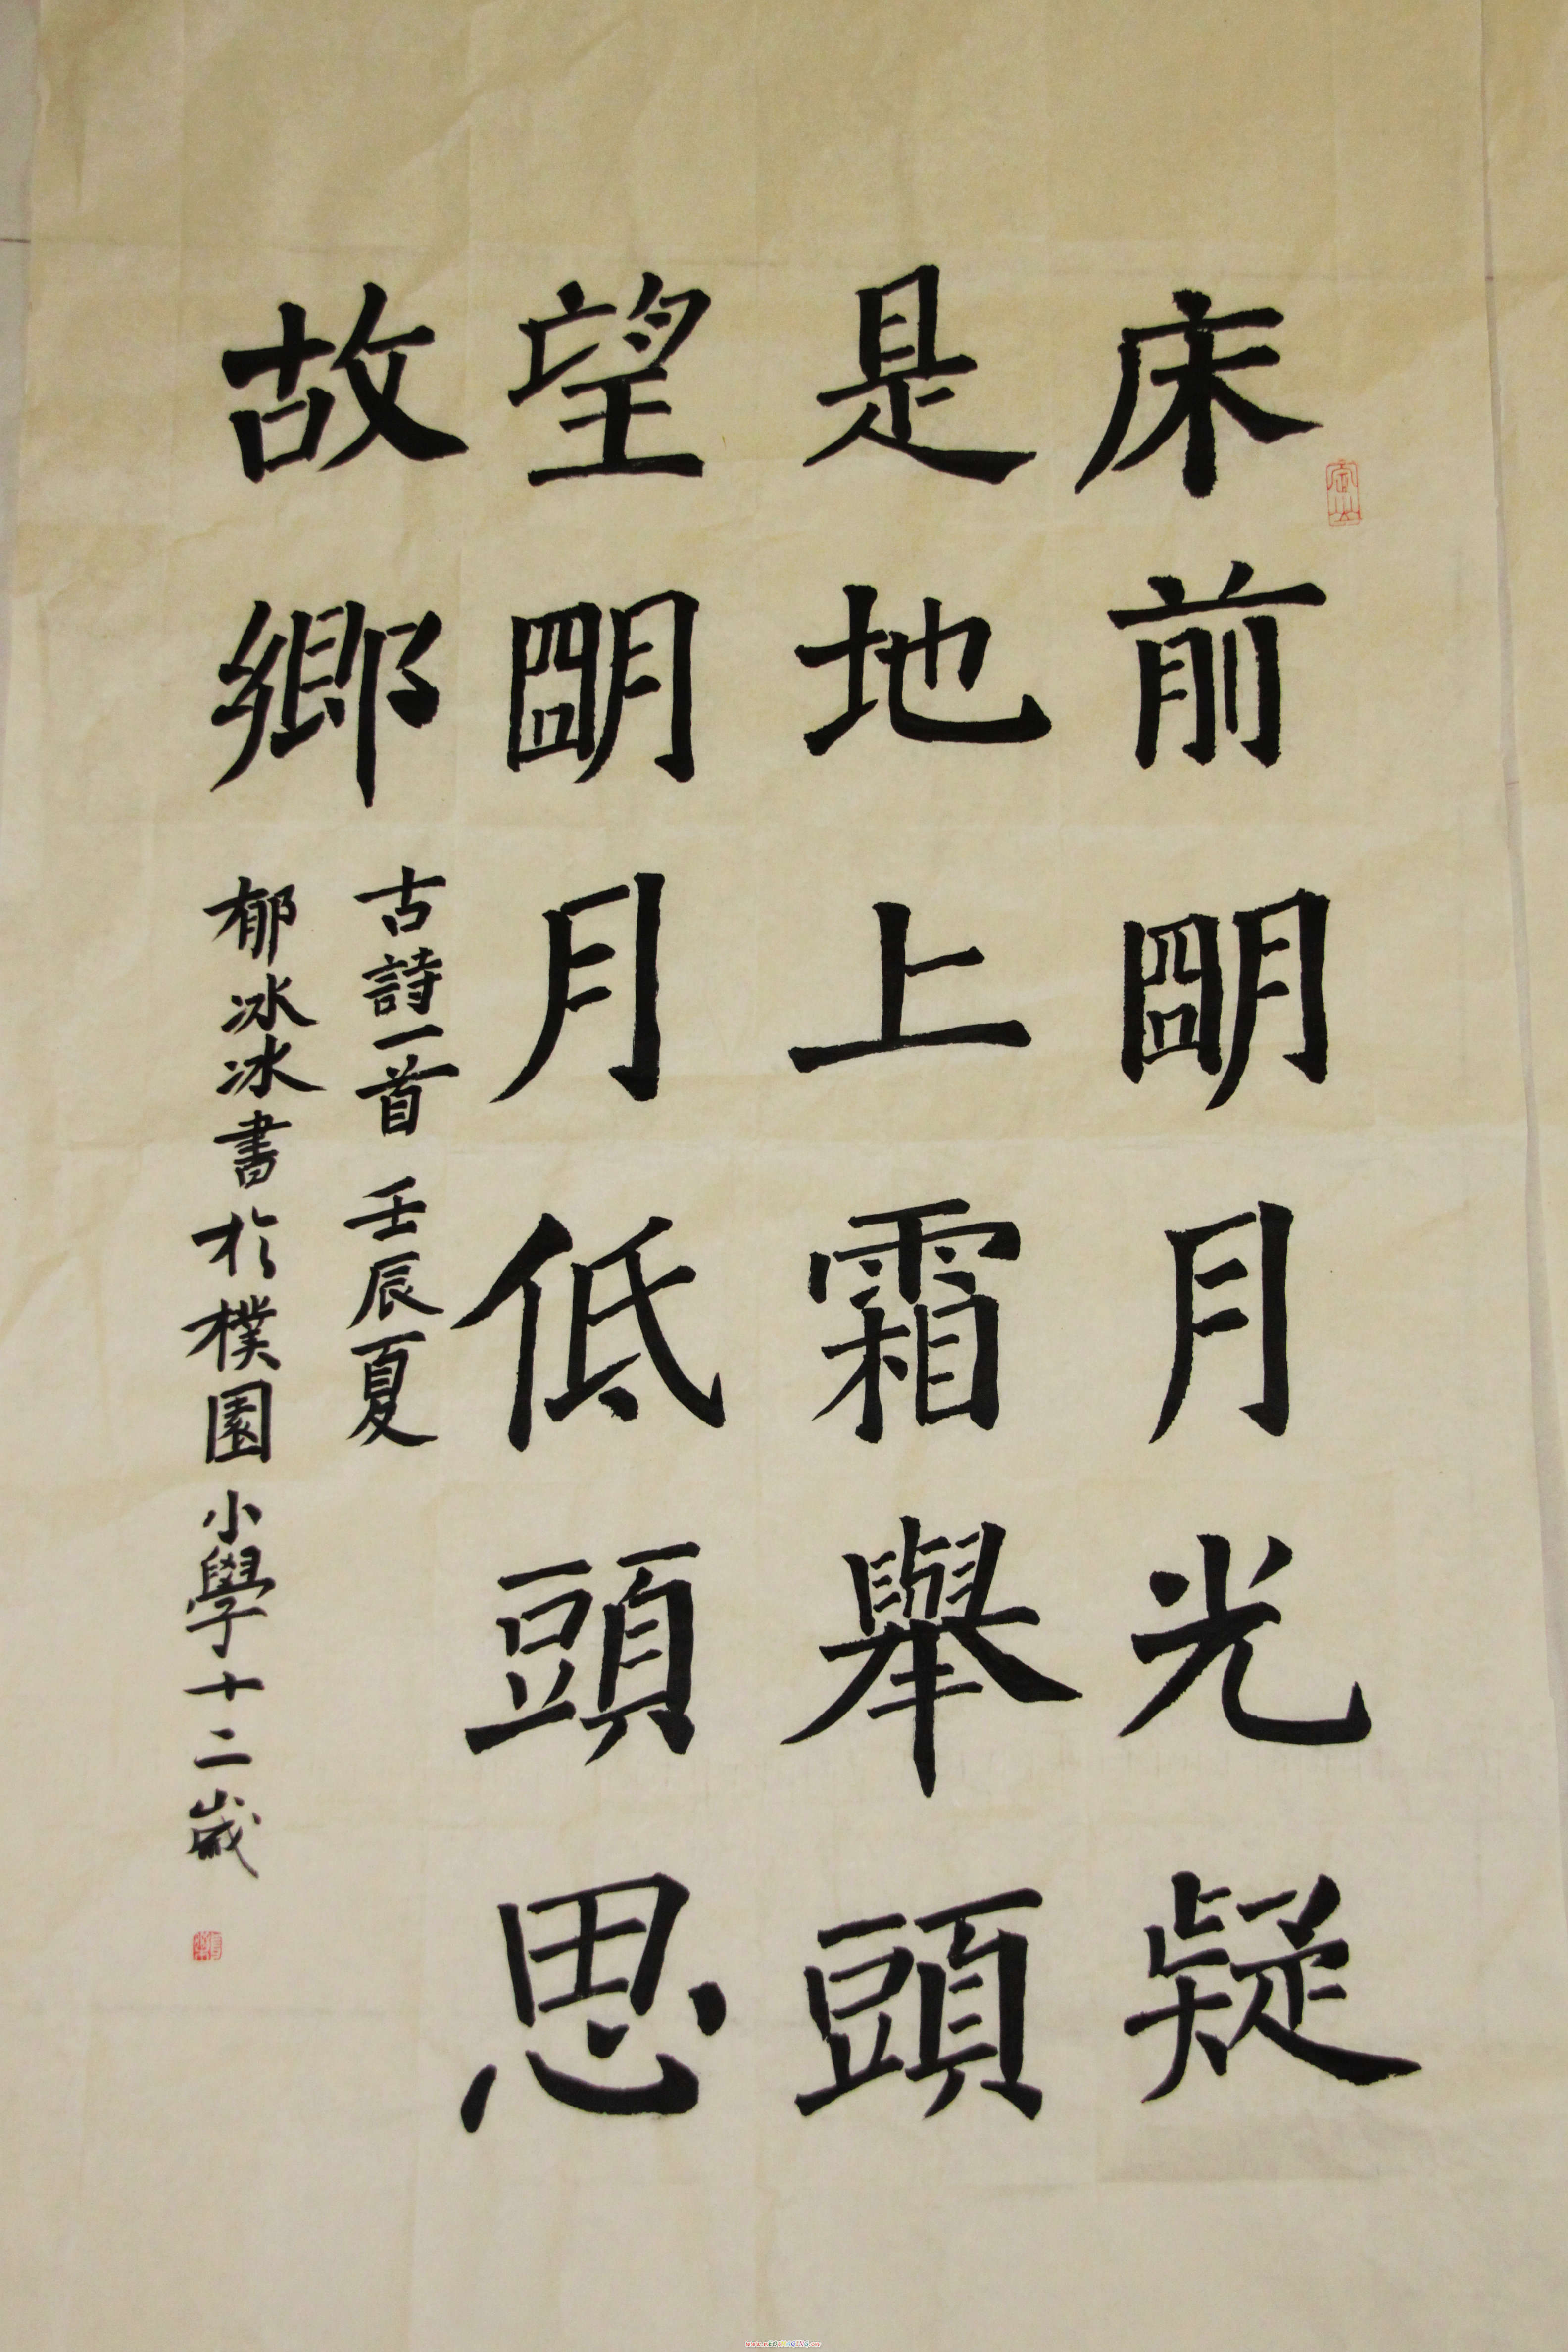 床前朙月光疑
是地上霜舉頭
望朙月低頭思
故鄉
古詩一首 壬辰夏
郁冰冰書於樸園小學十二歲